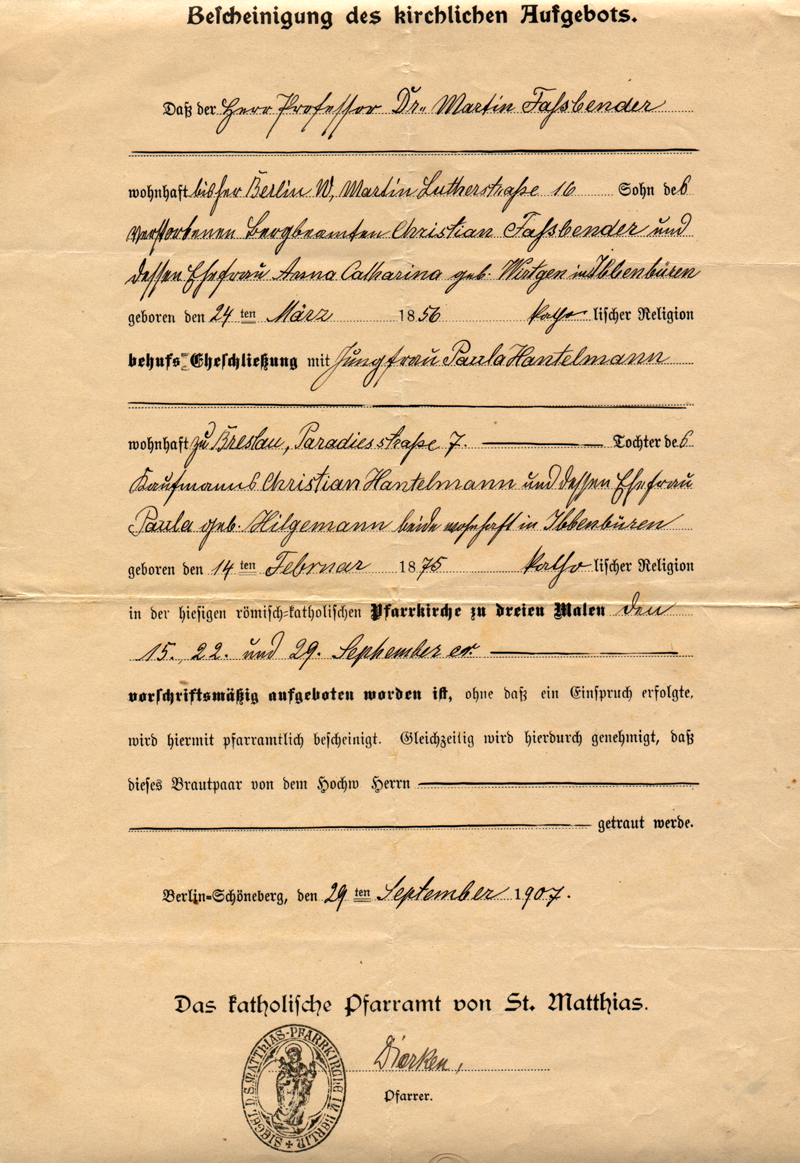 Bescheinigung des kirchlichen Aufgebots.
Daß der Herr Professor Dr. Martin Fassbender
wohnhaft bisher Berlin W, Martin Lutherstraße 16 Sohn des
verstorbenen Bergbeamten Christian Fassbender und
dessen Ehefrau Anna Catharina geb Wirtgen in Ibbenbüren
geboren den 24ten März 1856 katholischer Religion
behufs Eheschließung mit Jungfrau Paula Hantelmann
wohnhaft zu Breslau, Paradiesstraße 7. Tochter des
Kaufmanns Christian Hantelmann und dessen Ehefrau
Paula geb. Hilgemann beide wohnhaft in Ibbenbüren
geboren den 14ten Februar 1875 katholischer Religion
in der hiesigen römisch-katholischen Pfarrkirche zu dreien Malen den
15. 22. und 29. September cr
vorschriftsmäßig aufgeboten worden ist, ohne daß ein Einspruch erfolgte,
wird hiermit pfarramtlich bescheinigt. Gleichzeitig wird hierdurch genehmigt, daß
dieses Brautpaar von dem Hochw Herrn
getraut werde.
Berlin-Schöneberg, den 29ten September 1907.
Das katholische Pfarramt von St. Matthias.
SIEGEL D. S. MATTHIAS-PFARRKIRCHE IN BERLIN
Dierken,
Pfarrer.